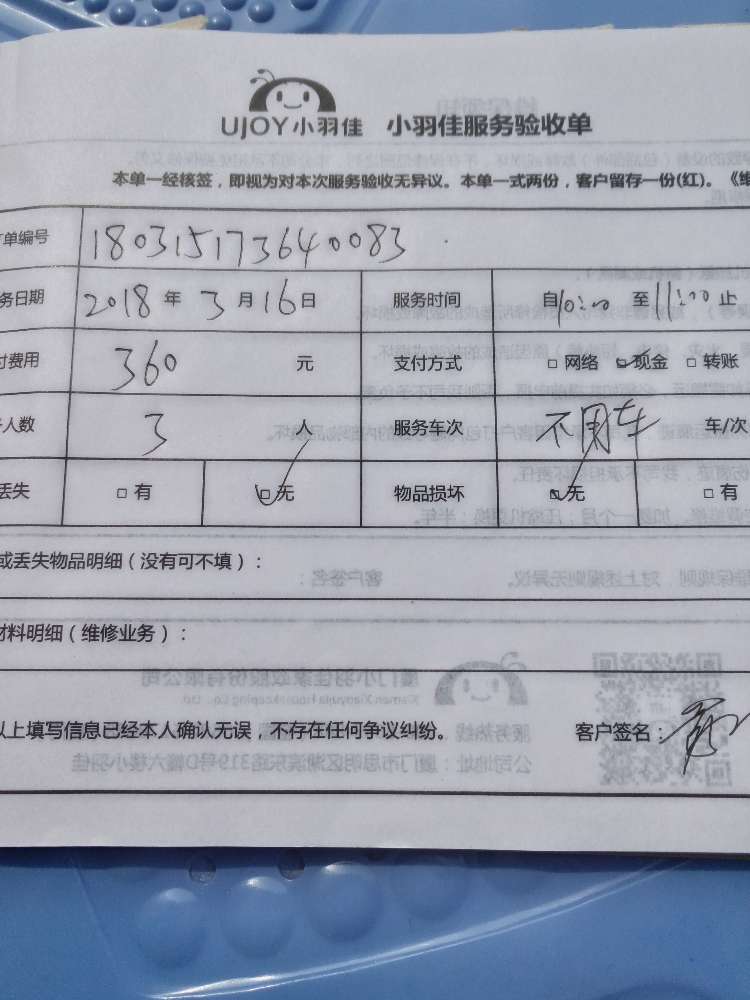 UJOY小羽佳 小羽佳服务验收单
本单一经核签，即视为对本次服务验收无异议。本单一式两份，客户留存一份(红)。《维
订单编号 180315173640083
务日期 2018 年 3 月 16 日 服务时间 自10:00 至 11:00 止
付费用 360 元 支付方式 □ 网络 ☑ 现金 □ 转账
人数 3 人 服务车次 不用车 车/次
丢失 □ 有 ☑ 无 物品损坏 ☑ 无 □ 有
或丢失物品明细（没有可不填）：
材料明细（维修业务）：
以上填写信息已经本人确认无误，不存在任何争议纠纷。 客户签名：